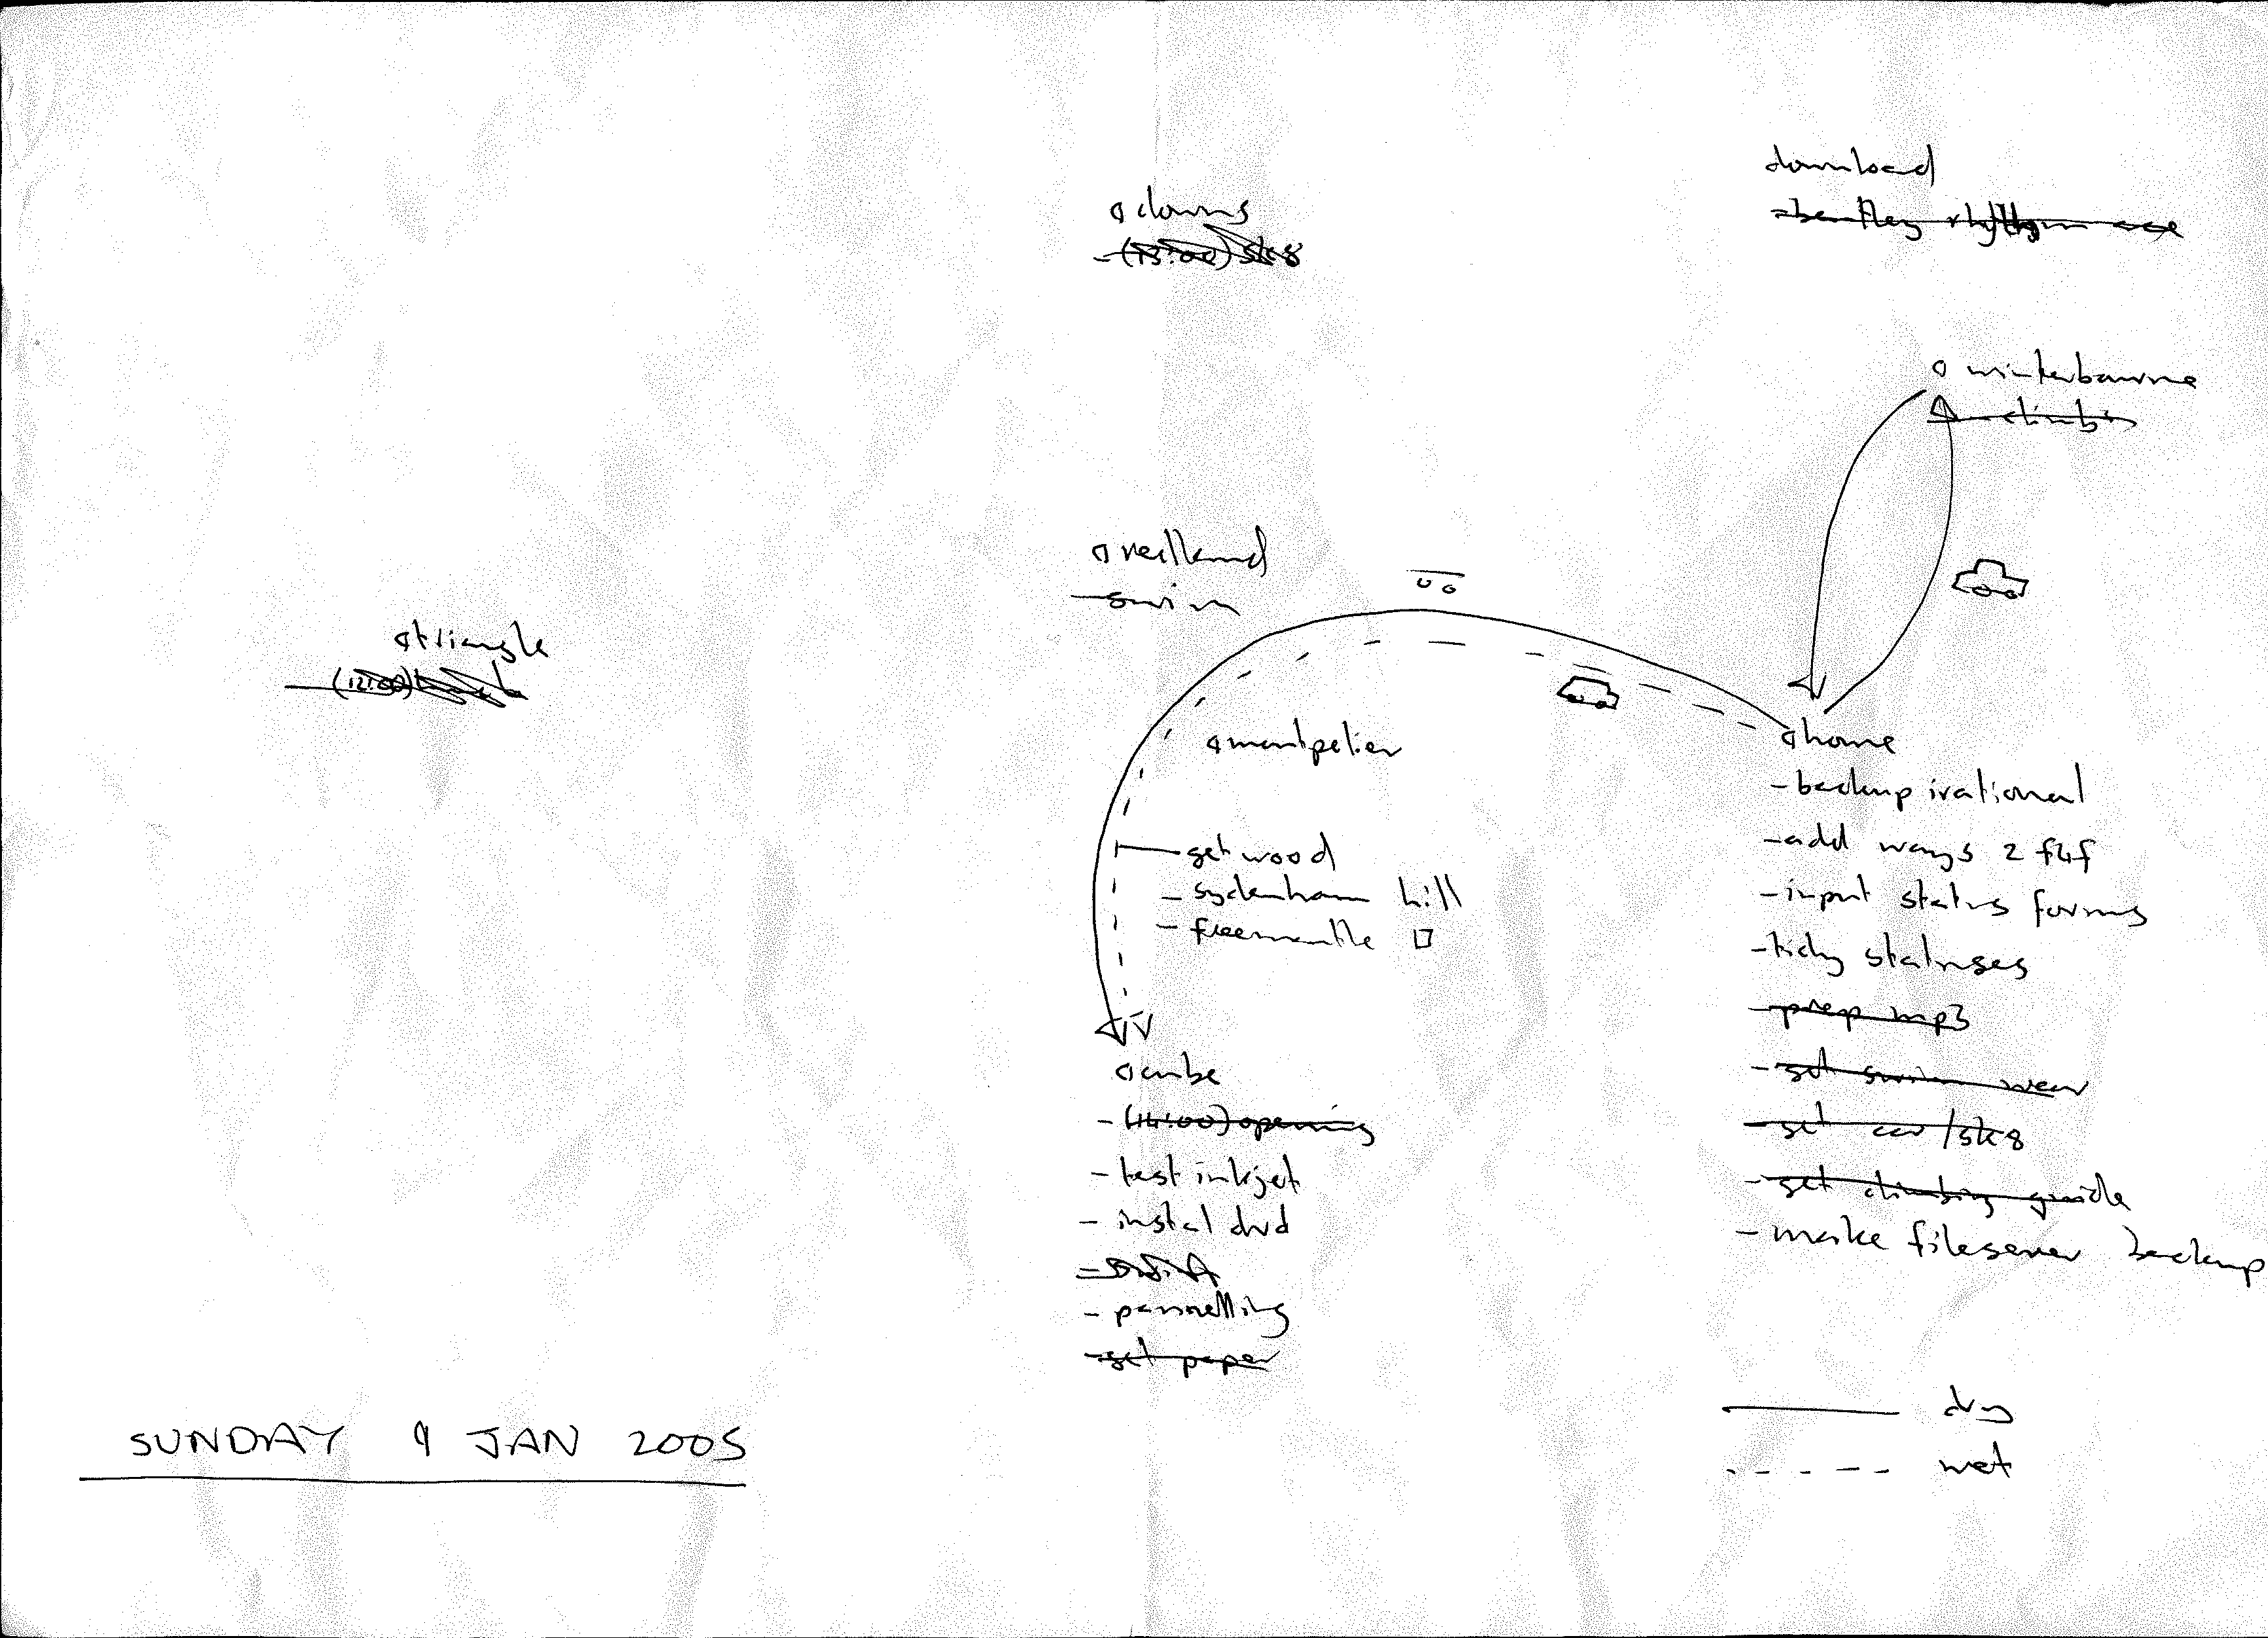 download
- bentley rhythm ace
downs
- (13:00) sk8
winterbourne
- climbin
redland
- swim
triangle
(12:00)
montpelier
home
- backup irational
- add ways 2 f4f
- input status forms
- tidy statuses
- prep mp3
- get swim wear
- get car/sk8
- get climbing guide
- make fileserver backup
get wood
- sydenham hill
- freemantle □
cube
- (14:00) opening
- test inkjet
- instal dvd
- pannelling
- get paper
dry
wet
SUNDAY 9 JAN 2005